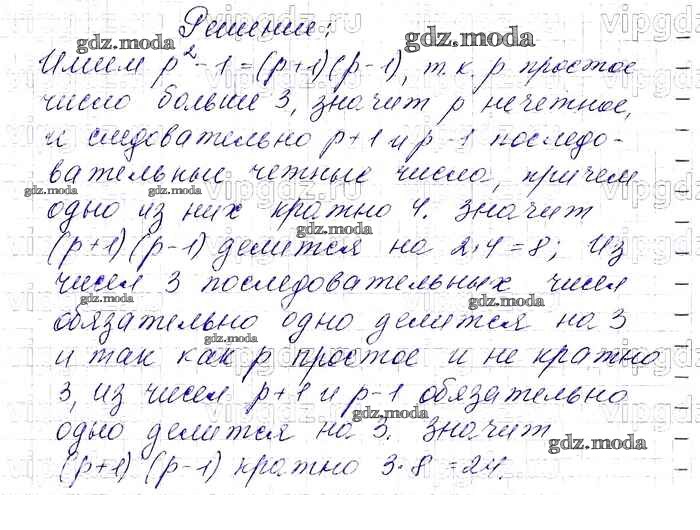 Решение:
Имеем p²-1=(p+1)(p-1), т.к. p простое
число больше 3, значит p нечетное,
и следовательно p+1 и p-1 последо-
вательные четные числа, причем
одно из них кратно 4. Значит
(p+1)(p-1) делится на 2·4=8; Из
чисел 3 последовательных чисел
обязательно одно делится на 3
и так как p простое и не кратно
3, из чисел p+1 и p-1 обязательно
одно делится на 3. Значит
(p+1)(p-1) кратно 3·8=24.
gdz.moda
gdz.moda
gdz.moda
gdz.moda
gdz.moda
gdz.moda
gdz.moda
gdz.moda
gdz.moda
gdz.moda
gdz.moda
vipgdz.ru